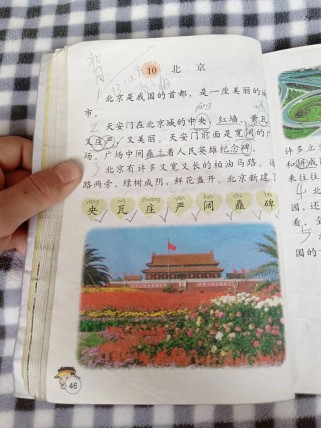 10 北京
北京是我国的首都，是一座美丽的
市。
2 天安门在北京城的中央，红墙、黄瓦
又庄严，又美丽。天安门前面是宽阔的广
场。广场中间矗立着人民英雄纪念碑。
3 北京有许多又宽又长的柏油马路。
路两旁，绿树成阴，鲜花盛开。北京新建了
yāng wǎ zhuāng yán kuò chù bēi
央 瓦 庄 严 阔 矗 碑
46
许多立
和
来往往
4 北
园，还
看，全
5
国的